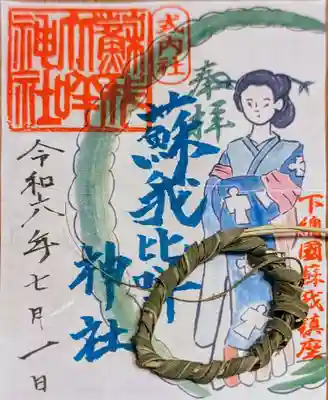 式内社
奉拝
蘇我比咩
神社
下総國蘇我鎮座
令和六年七月一日
蘇我
比咩
神社